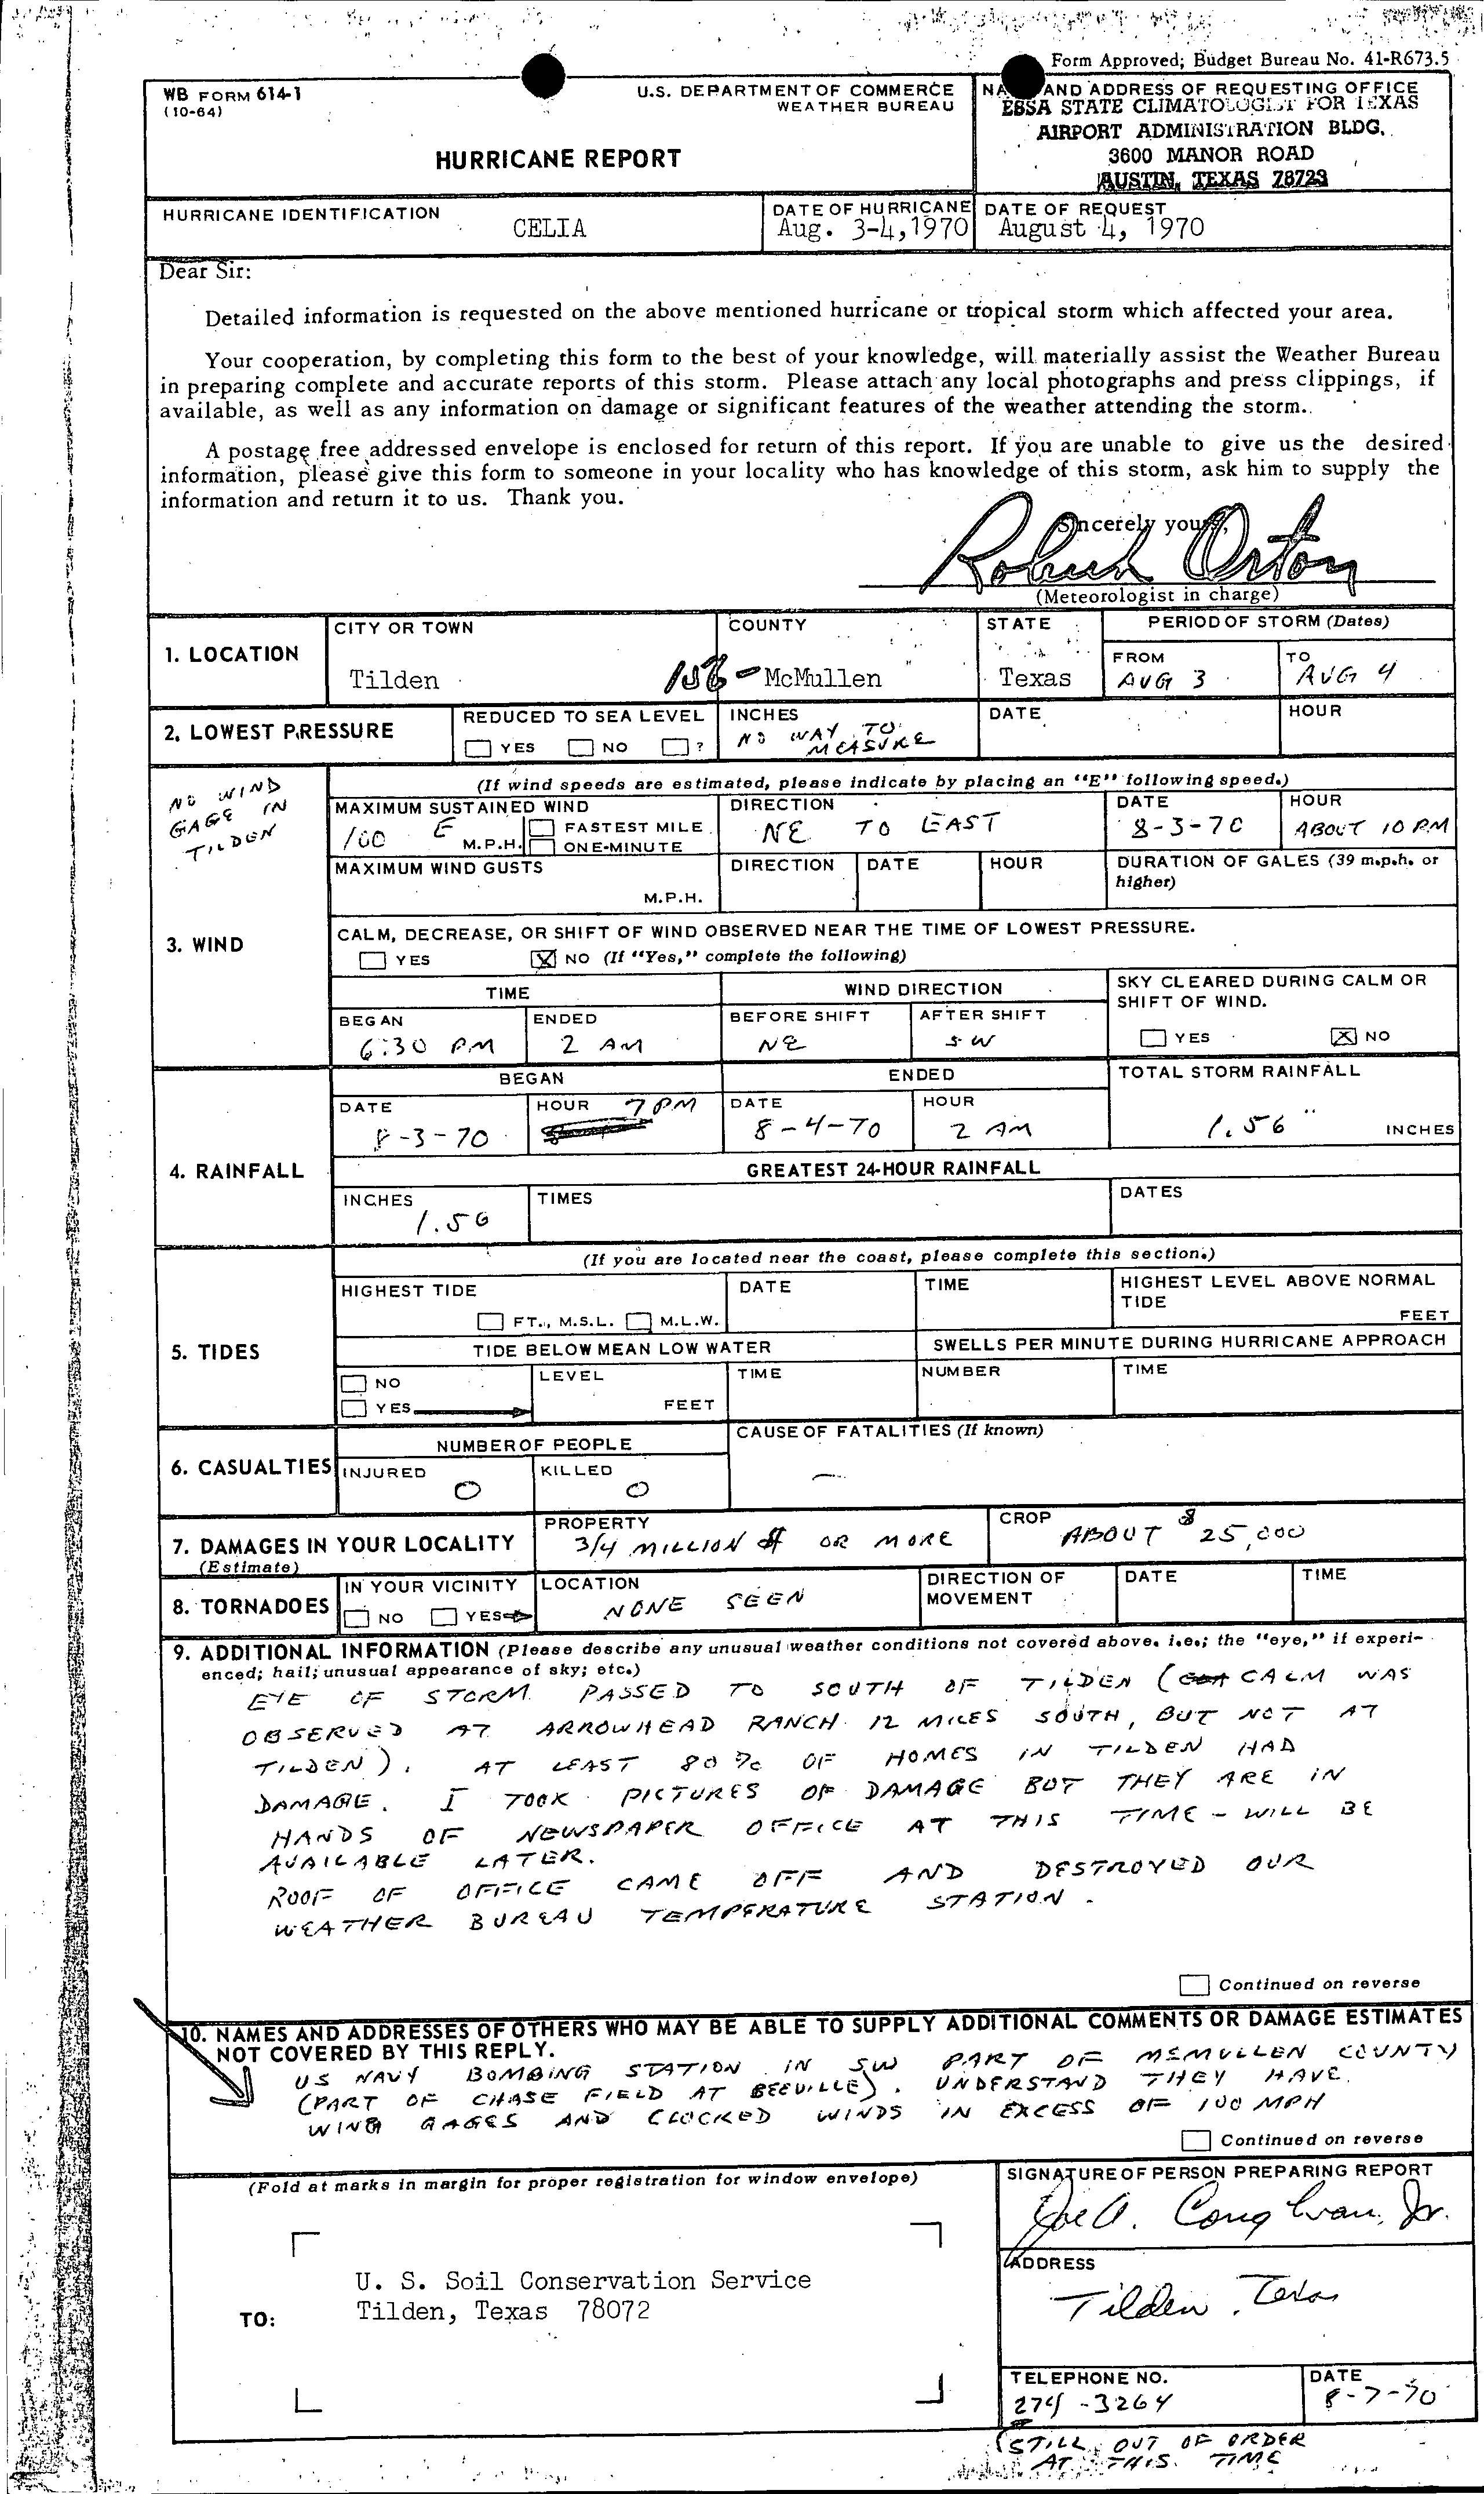 Form Approved; Budget Bureau No. 41-R673.5
WB FORM 614-1
(10-64)
U.S. DEPARTMENT OF COMMERCE
WEATHER BUREAU
HURRICANE REPORT
AND ADDRESS OF REQUESTING OFFICE
ESSA STATE CLIMATOLOGIST FOR TEXAS
AIRPORT ADMINISTRATION BLDG.
3600 MANOR ROAD
AUSTIN, TEXAS 78723
HURRICANE IDENTIFICATION
CELIA
DATE OF HURRICANE
Aug. 3-4,1970
DATE OF REQUEST
August 4, 1970
Dear Sir:
Detailed information is requested on the above mentioned hurricane or tropical storm which affected your area.
Your cooperation, by completing this form to the best of your knowledge, will materially assist the Weather Bureau
in preparing complete and accurate reports of this storm. Please attach any local photographs and press clippings, if
available, as well as any information on damage or significant features of the weather attending the storm.
A postage free addressed envelope is enclosed for return of this report. If you are unable to give us the desired
information, please give this form to someone in your locality who has knowledge of this storm, ask him to supply the
information and return it to us. Thank you.
Sincerely yours,
Robert Orton
(Meteorologist in charge)
1. LOCATION
CITY OR TOWN
Tilden
COUNTY
156 - McMullen
STATE
Texas
PERIOD OF STORM (Dates)
FROM
AUG 3
TO
AUG 4
2. LOWEST PRESSURE
REDUCED TO SEA LEVEL
YES NO ?
INCHES
NO WAY TO
MEASURE
DATE
HOUR
NO WIND
GAGE IN
TILDEN
3. WIND
(If wind speeds are estimated, please indicate by placing an "E" following speed.)
MAXIMUM SUSTAINED WIND
100 E M.P.H.
FASTEST MILE
ONE-MINUTE
DIRECTION
NE TO EAST
DATE
8-3-70
HOUR
ABOUT 10 PM
MAXIMUM WIND GUSTS
M.P.H.
DIRECTION
DATE
HOUR
DURATION OF GALES (39 m.p.h. or
higher)
CALM, DECREASE, OR SHIFT OF WIND OBSERVED NEAR THE TIME OF LOWEST PRESSURE.
YES X NO (If "Yes," complete the following)
TIME
WIND DIRECTION
SKY CLEARED DURING CALM OR
SHIFT OF WIND.
YES X NO
BEGAN
6:30 PM
ENDED
2 AM
BEFORE SHIFT
NE
AFTER SHIFT
SW
4. RAINFALL
BEGAN
ENDED
TOTAL STORM RAINFALL
1.56" INCHES
DATE
8-3-70
HOUR 7 PM
DATE
8-4-70
HOUR
2 AM
GREATEST 24-HOUR RAINFALL
INCHES
1.56
TIMES
DATES
5. TIDES
(If you are located near the coast, please complete this section.)
HIGHEST TIDE
FT., M.S.L. M.L.W.
DATE
TIME
HIGHEST LEVEL ABOVE NORMAL
TIDE
FEET
TIDE BELOW MEAN LOW WATER
SWELLS PER MINUTE DURING HURRICANE APPROACH
NO
YES
LEVEL
FEET
TIME
NUMBER
TIME
6. CASUALTIES
NUMBER OF PEOPLE
INJURED
0
KILLED
0
CAUSE OF FATALITIES (If known)
—
7. DAMAGES IN YOUR LOCALITY
(Estimate)
PROPERTY
3/4 MILLION $ OR MORE
CROP
ABOUT $ 25,000
8. TORNADOES
IN YOUR VICINITY
NO YES
LOCATION
NONE SEEN
DIRECTION OF
MOVEMENT
DATE
TIME
9. ADDITIONAL INFORMATION (Please describe any unusual weather conditions not covered above. i.e.; the "eye," if experi-
enced; hail; unusual appearance of sky; etc.)
EYE OF STORM PASSED TO SOUTH OF TILDEN (CALM WAS
OBSERVED AT ARROWHEAD RANCH 12 MILES SOUTH, BUT NOT AT
TILDEN). AT LEAST 80% OF HOMES IN TILDEN HAD
DAMAGE. I TOOK PICTURES OF DAMAGE BUT THEY ARE IN
HANDS OF NEWSPAPER OFFICE AT THIS TIME - WILL BE
AVAILABLE LATER.
ROOF OF OFFICE CAME OFF AND DESTROYED OUR
WEATHER BUREAU TEMPERATURE STATION.
Continued on reverse
10. NAMES AND ADDRESSES OF OTHERS WHO MAY BE ABLE TO SUPPLY ADDITIONAL COMMENTS OR DAMAGE ESTIMATES
NOT COVERED BY THIS REPLY.
US NAVY BOMBING STATION IN SW PART OF MCMULLEN COUNTY
(PART OF CHASE FIELD AT BEEVILLE). UNDERSTAND THEY HAVE
WING GAGES AND CLOCKED WINDS IN EXCESS OF 100 MPH
Continued on reverse
(Fold at marks in margin for proper registration for window envelope)
TO:
U. S. Soil Conservation Service
Tilden, Texas 78072
SIGNATURE OF PERSON PREPARING REPORT
Joe A. Coughran, Jr.
ADDRESS
Tilden, Texas
TELEPHONE NO.
274-3264
DATE
8-7-70
(STILL OUT OF ORDER
AT THIS TIME